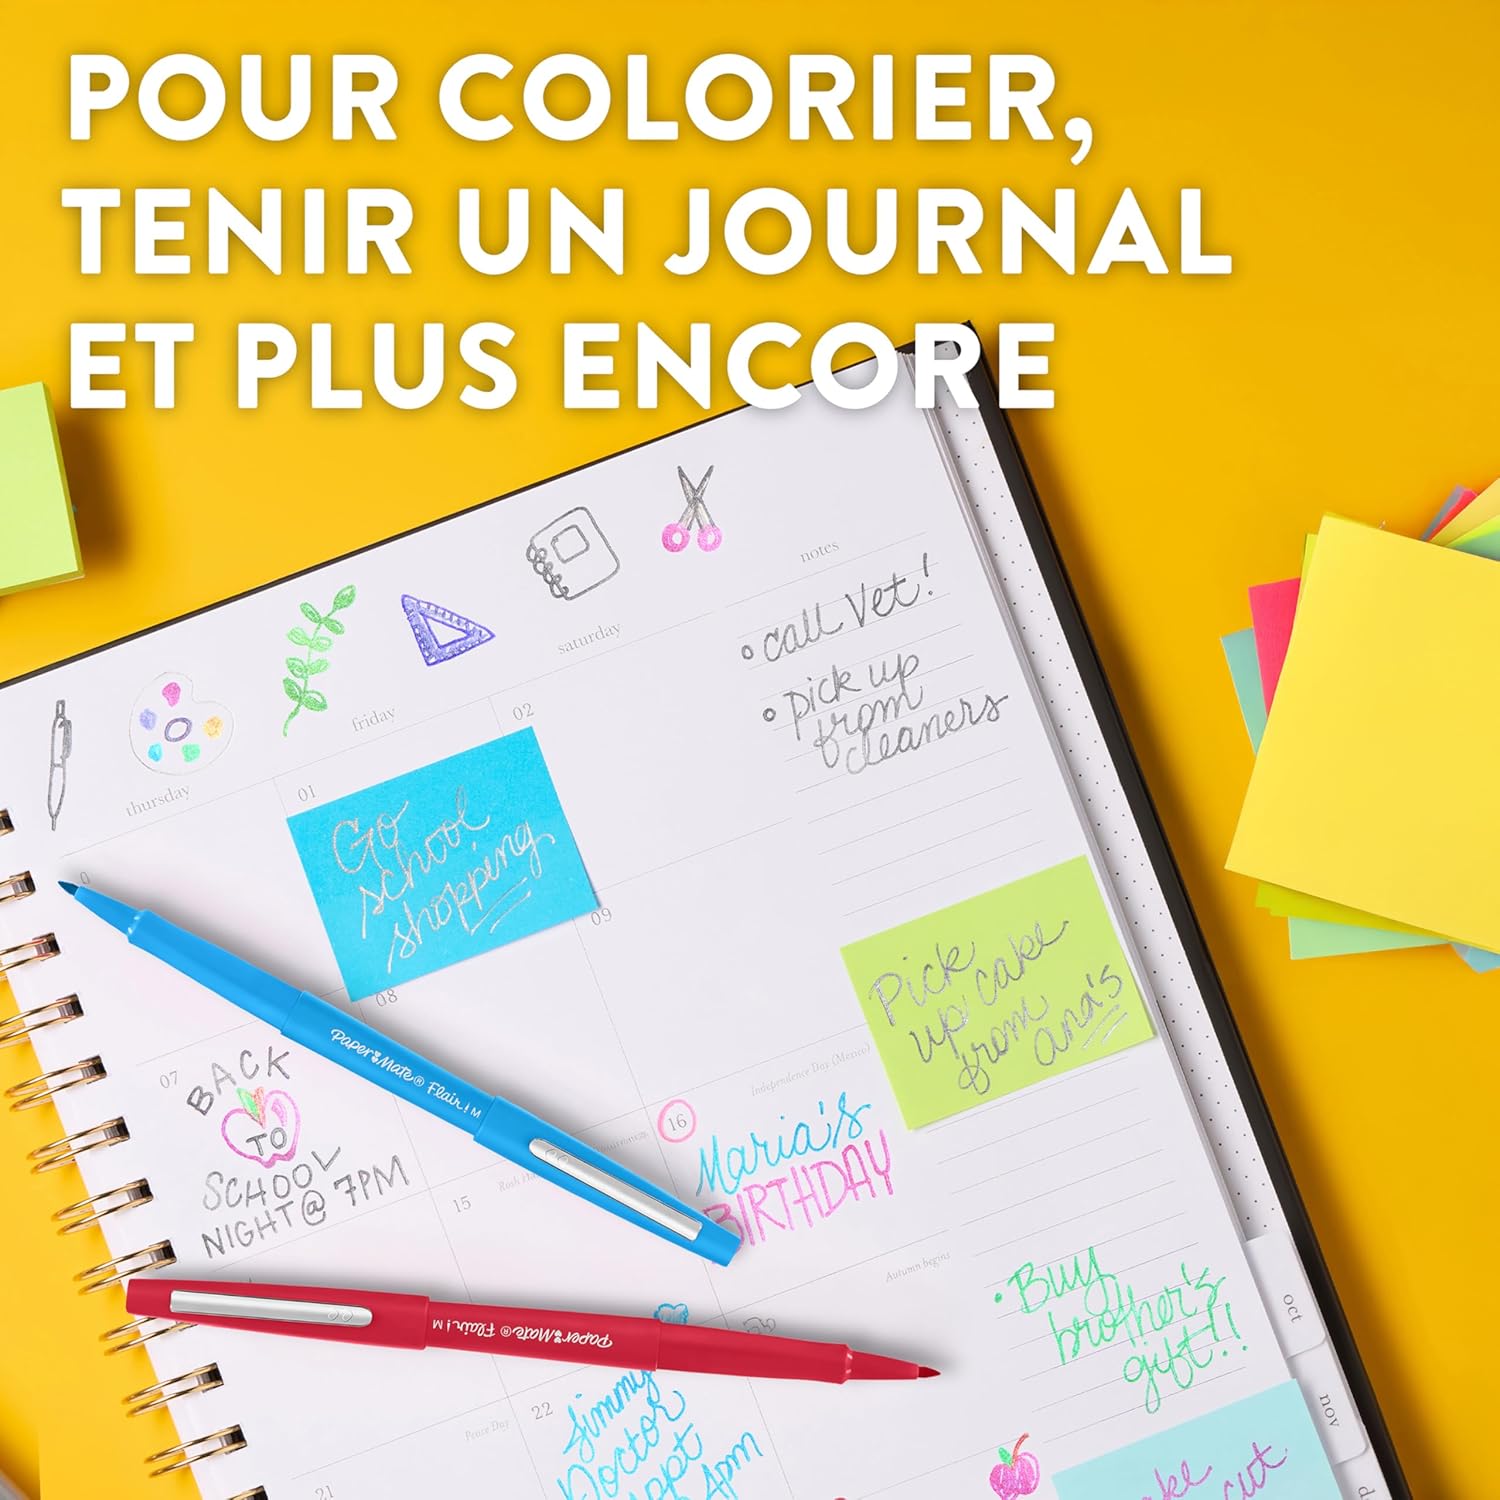 POUR COLORIER,
TENIR UN JOURNAL
ET PLUS ENCORE
notes
saturday
friday
thursday
• call Vet!
• pick up
from
cleaners
02
01
Go
school
shopping
09
08
Pick
up cake
from
ana's
07
BACK
TO
SCHOOL
NIGHT @ 7PM
Paper Mate® Flair! M
Independence Day (Mexico)
16
Maria's
BIRTHDAY
15
Autumn begins
• Buy
brother's
gift!!
oct
nov
d
Paper Mate® Flair! M
22
Jimmy
Doctor
appt
4pm
Peace Day
21
cut